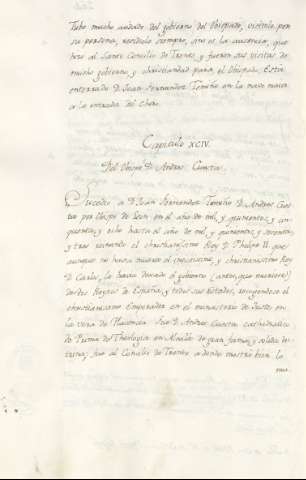 Tubo mucho cuidado del gobierno del Obispado, visitolo por
su persona, residiolo siempre, sino es la ausencia, que
hizo al Santo Concilio de Trento, y fueron sus visitas de
mucho gobierno, y christiandad para el Obispado. Esta
enterrado D. Juan Fernandez Temiño en la nave maior
a la entrada del choro.
Capitulo XCIV.
Del Obispo D. Andres Cuesta.
Sucedio a D. Juan Fernandez Temiño D. Andres Cues
ta por Obispo de Leon, en el año de mil, y quinientos, y cin
quenta, y ocho hasta el año de mil, y quinientos, y sesenta,
y tres reinando el christianisimo Rey D. Phelipe II. que
aunque no havia muerto el christianisimo Rey
D. Carlos, le havia dexado el gobierno (antes, que muriese)
de los Reynos de España, y todos sus Estados, recogiendose el
christianisimo Emperador en el monasterio de Juste en
la vera de Plasencia. Fue D. Andres Cuesta cathedratico
de Prima de Theologia en Alcala de gran fama, y solida doc
trina, fue al Concilio de Trento a donde mostro bien lo